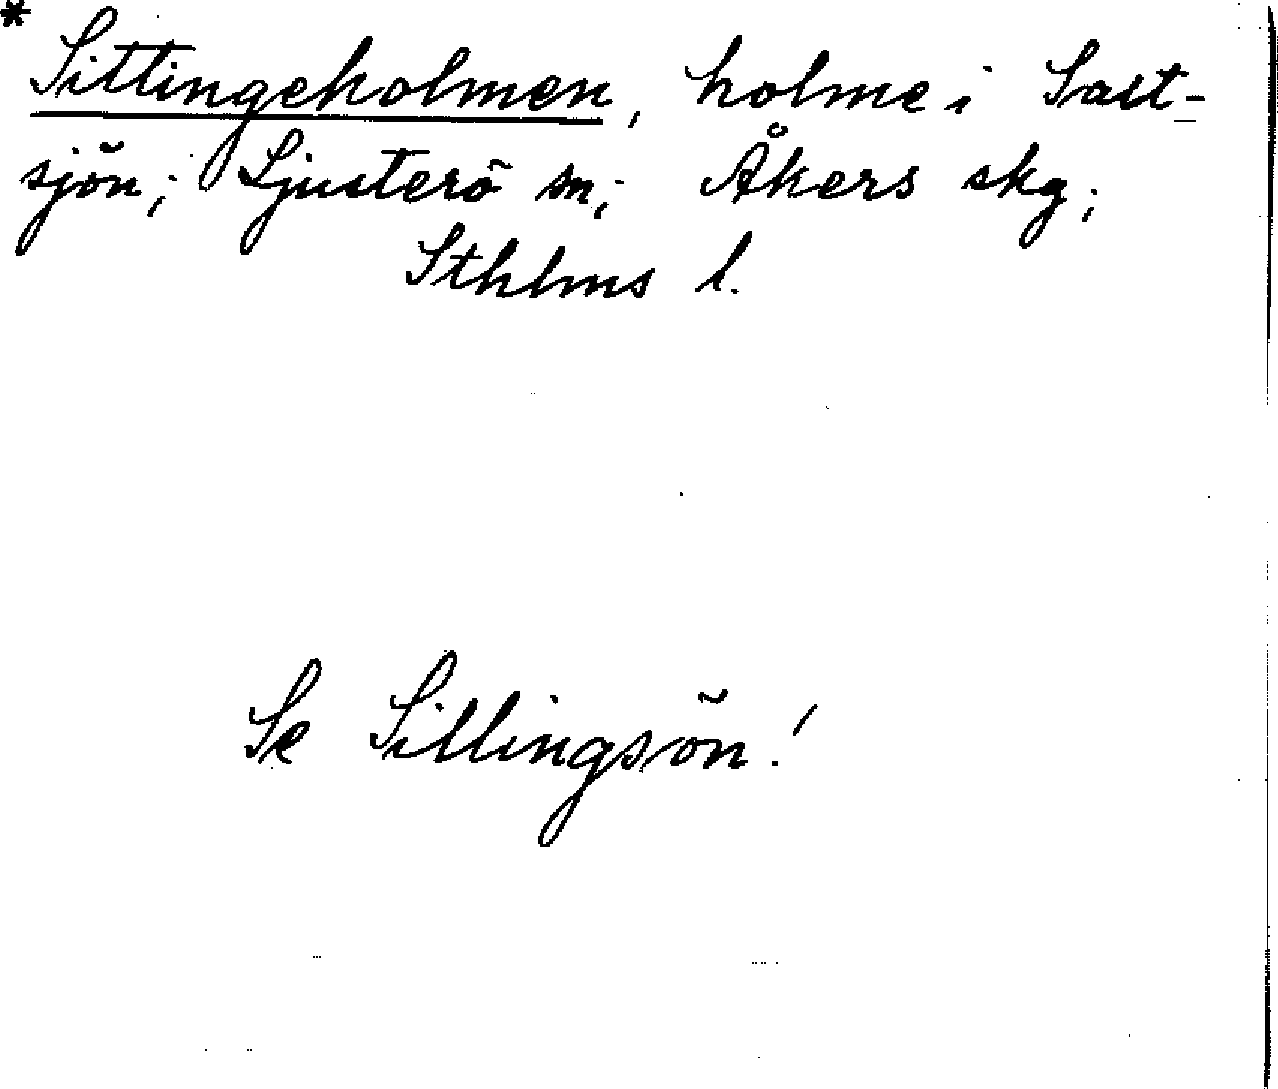 * Sittingeholmen, holme i Salt-
sjön; Ljusterö sn; Åkers skg;
Sthlms l.
Se Sillingsön!